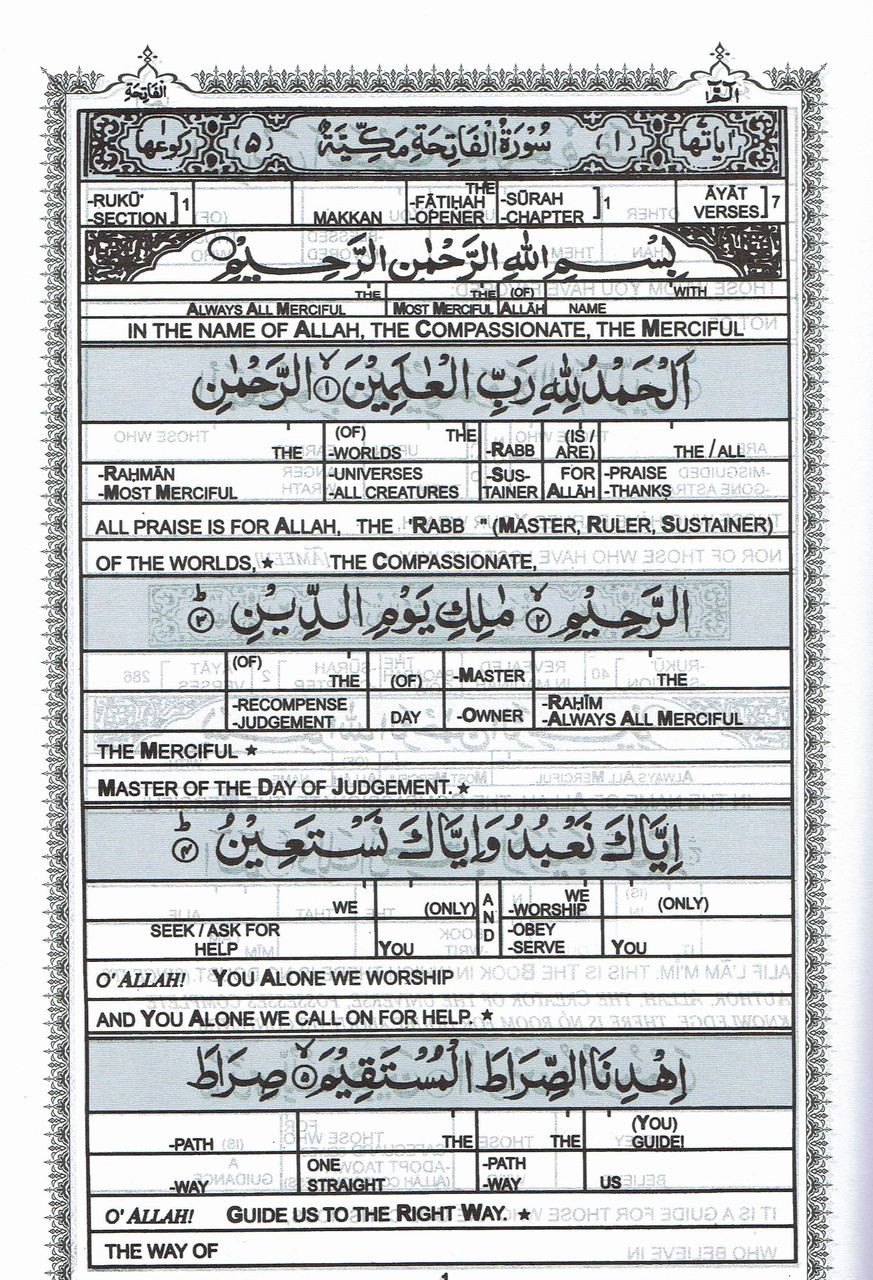 الفاتحة
الٓمّٓ ١
اٰیاتها ٧ (١) سُوْرَةُ الْفَاتِحَةِ مَكِّیَّةٌ (٥) ركوعها ١
-RUKŪ' -SECTION ] 1 MAKKAN THE -FĀTIḤAH -OPENER -SŪRAH -CHAPTER ] 1 ĀYĀT VERSES ] 7
بِسْمِ اللهِ الرَّحْمٰنِ الرَّحِیْمِ
THE THE (OF) WITH
ALWAYS ALL MERCIFUL MOST MERCIFUL ALLĀH NAME
IN THE NAME OF ALLAH, THE COMPASSIONATE, THE MERCIFUL
اَلْحَمْدُ لِلّٰهِ رَبِّ الْعٰلَمِیْنَ ۙ﴿١﴾ الرَّحْمٰنِ
THE (OF) THE -WORLDS -RABB (IS / ARE) THE / ALL
-RAḤMĀN -UNIVERSES -SUS- FOR -PRAISE
-MOST MERCIFUL -ALL CREATURES TAINER ALLĀH -THANKS
ALL PRAISE IS FOR ALLAH, THE "RABB " (MASTER, RULER, SUSTAINER)
OF THE WORLDS, ★ THE COMPASSIONATE,
الرَّحِیْمِ ۙ﴿٢﴾ مٰلِكِ یَوْمِ الدِّیْنِ ؕ﴿٣﴾
(OF) THE (OF) -MASTER THE
-RECOMPENSE -RAḤĪM
-JUDGEMENT DAY -OWNER -ALWAYS ALL MERCIFUL
THE MERCIFUL ★
MASTER OF THE DAY OF JUDGEMENT. ★
اِیَّاكَ نَعْبُدُ وَاِیَّاكَ نَسْتَعِیْنُ ؕ﴿٤﴾
WE (ONLY) AND WE -WORSHIP (ONLY)
SEEK / ASK FOR -OBEY
HELP YOU -SERVE YOU
O' ALLAH! YOU ALONE WE WORSHIP
AND YOU ALONE WE CALL ON FOR HELP. ★
اِهْدِنَا الصِّرَاطَ الْمُسْتَقِیْمَ ۙ﴿٥﴾ صِرَاطَ
-PATH THE THE (YOU) GUIDE!
ONE -PATH
-WAY STRAIGHT -WAY US
O' ALLAH! GUIDE US TO THE RIGHT WAY. ★
THE WAY OF
1